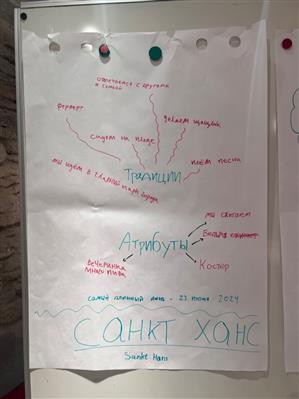 встречаемся с друзьями
и семьей
фейерверк
делаем
сидем на пляже
поем песни
мы идём в главный парк города
Традиции
мы сжигаем
Атрибуты
Вечеринка
много пива
Костёр
самый длинный день - 23 июня 2024
САНКТ ХАНС
Sankt Hans